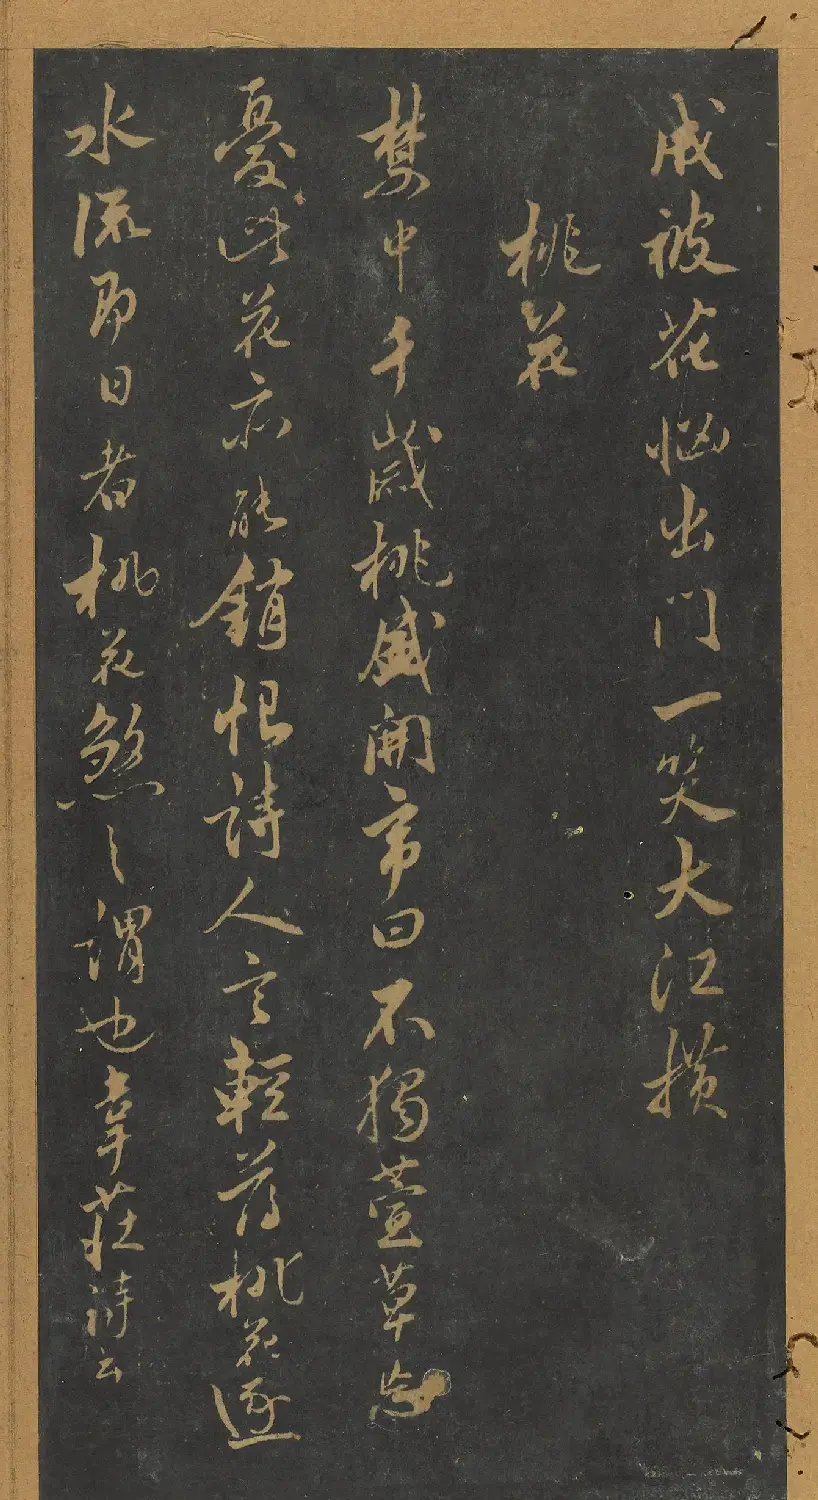 成被花惱出門一笑大江横
桃花
禁中千歲桃盛開帝曰不獨萱草忘
憂此花亦能銷恨詩人言輕薄桃花逐
水流即日者桃花煞之謂也韋莊詩云